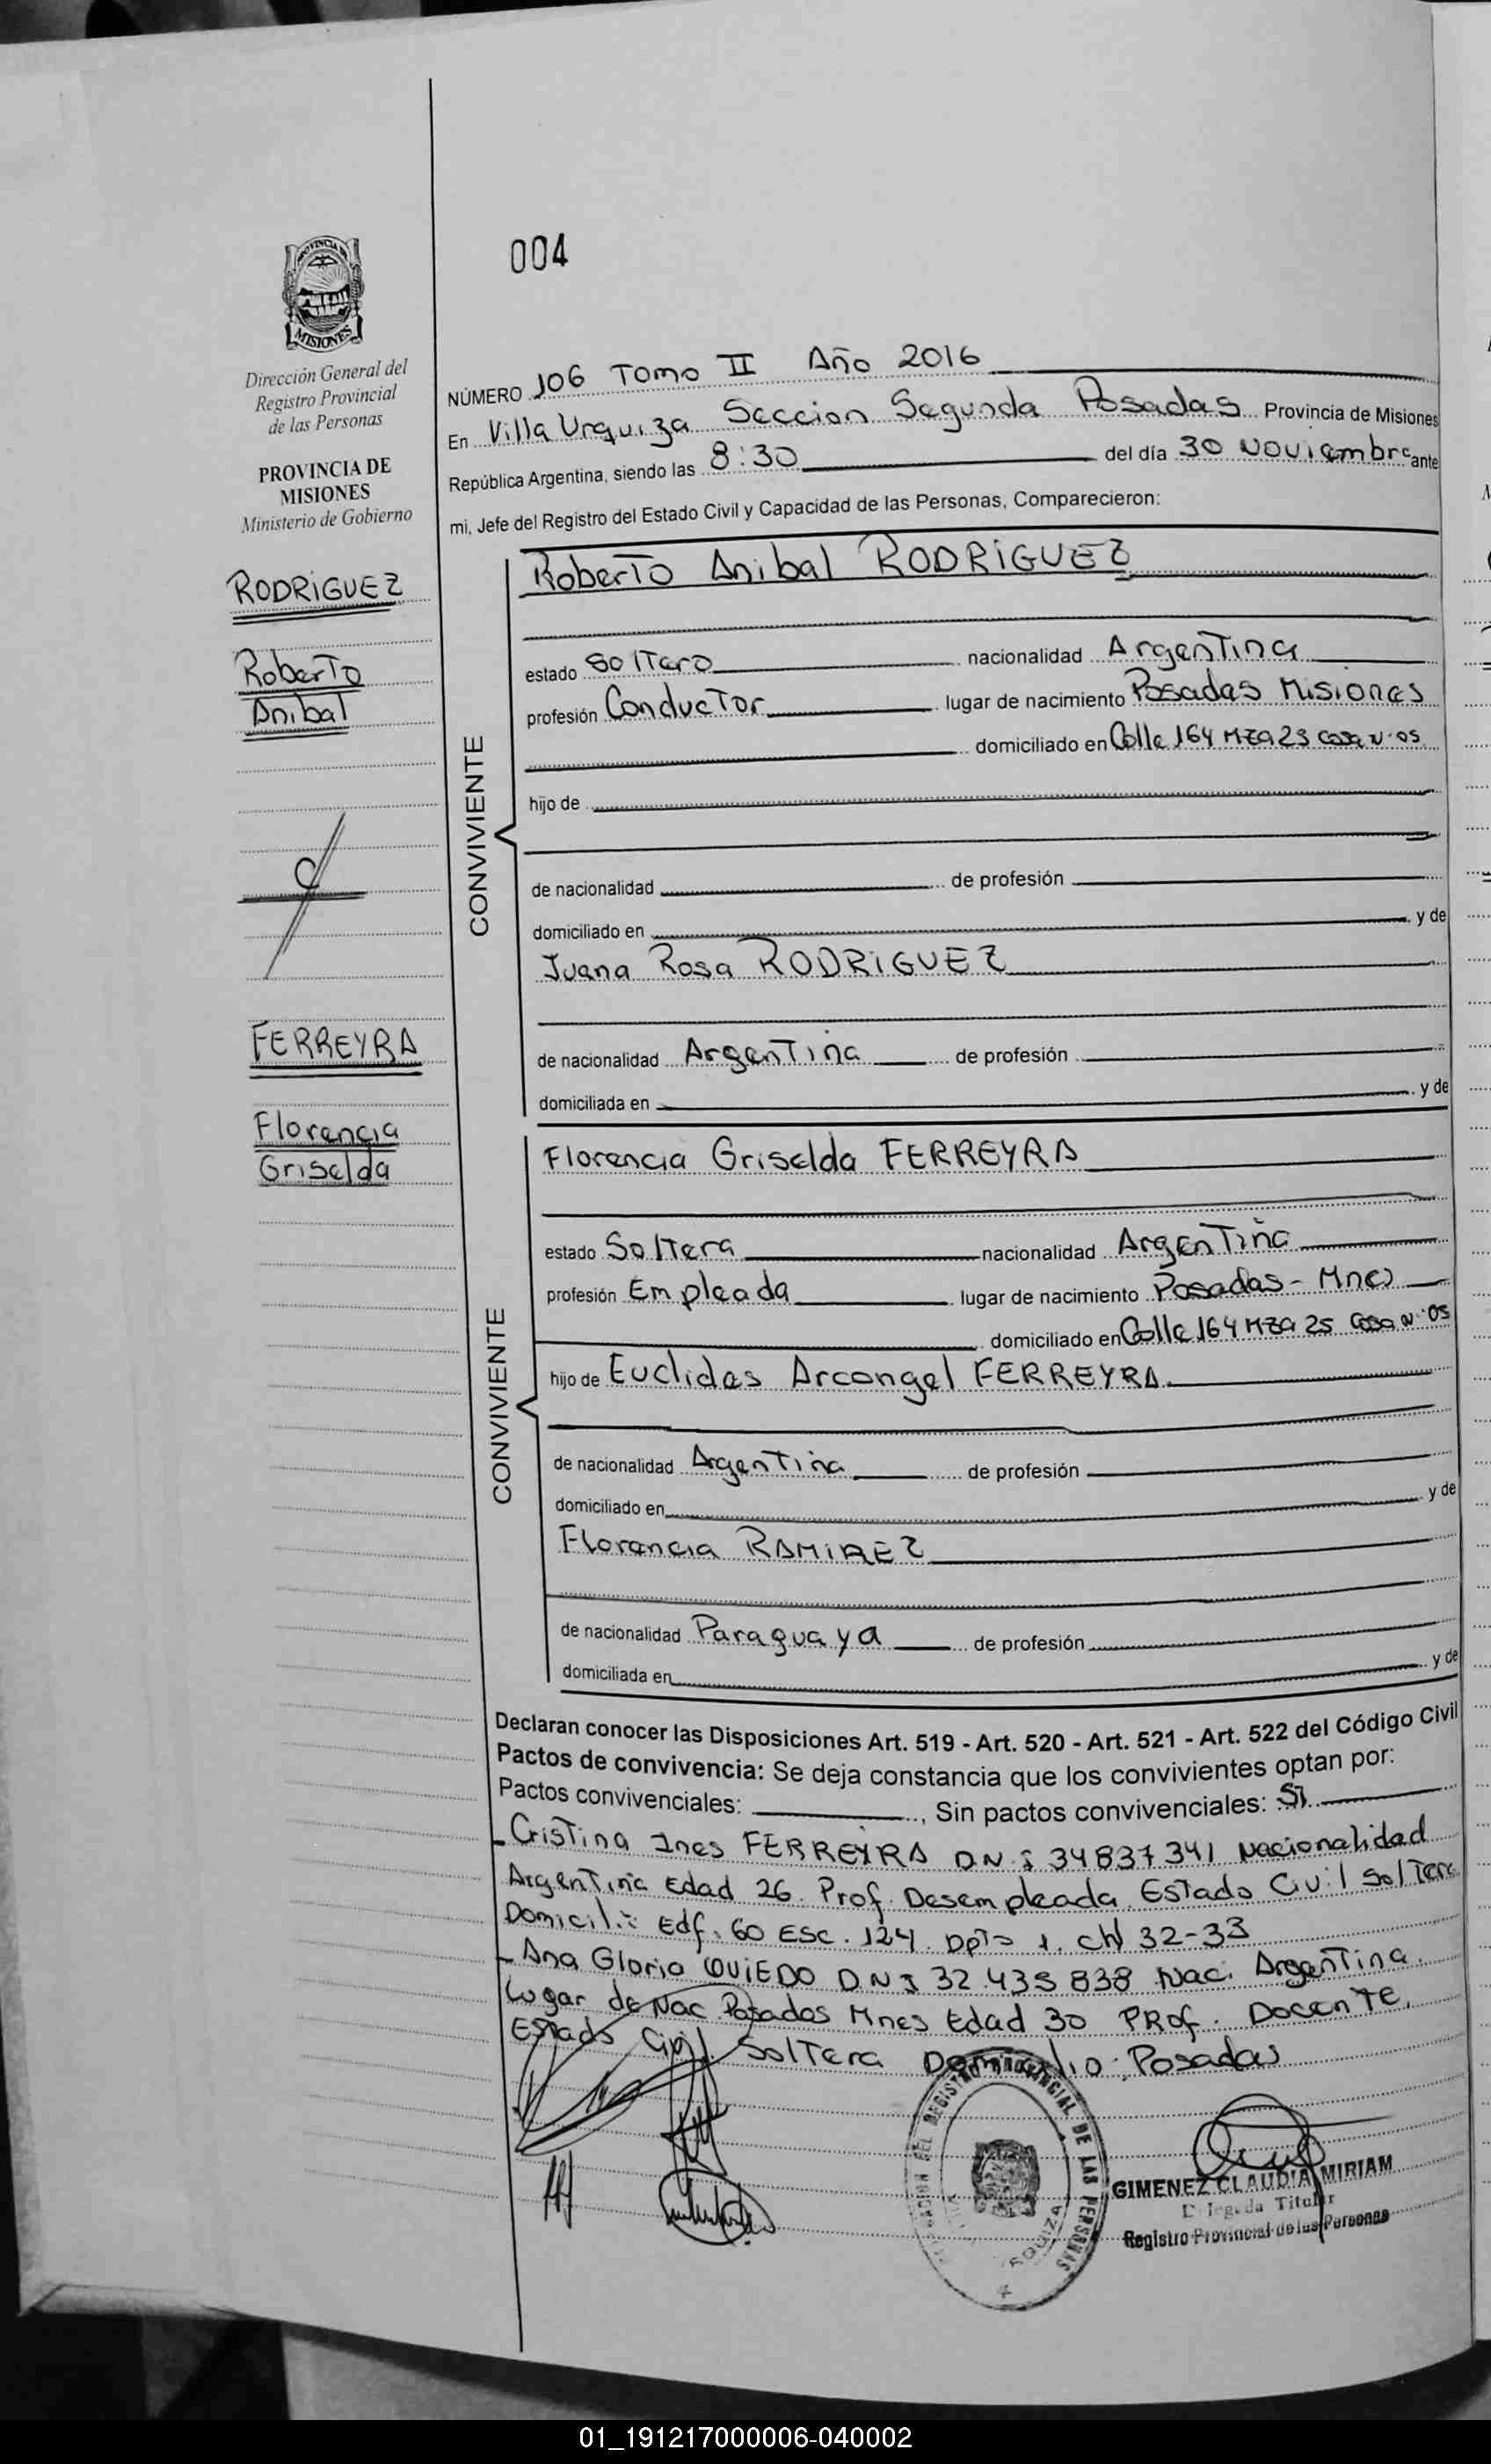 004
PROVINCIA DE
MISIONES
Dirección General del
Registro Provincial
de las Personas
PROVINCIA DE
MISIONES
Ministerio de Gobierno
RODRIGUEZ
Roberto
Anibal
FERREYRA
Florencia
Griselda
NÚMERO 106 Tomo II Año 2016
En Villa Urquiza Seccion Segunda Posadas Provincia de Misiones
República Argentina, siendo las 8:30 del día 30 Noviembre ante
mi, Jefe del Registro del Estado Civil y Capacidad de las Personas, Comparecieron:
CONVIVIENTE
Roberto Anibal RODRIGUEZ
estado Soltero nacionalidad Argentina
profesión Conductor lugar de nacimiento Posadas Misiones
domiciliado en Calle 164 Mza 25 casa N° 05
hijo de
de nacionalidad de profesión
domiciliado en y de
Juana Rosa RODRIGUEZ
de nacionalidad Argentina de profesión
domiciliada en y de
CONVIVIENTE
Florencia Griselda FERREYRA
estado Soltera nacionalidad Argentina
profesión Empleada lugar de nacimiento Posadas - Mnes
domiciliado en Calle 164 Mza 25 casa N° 05
hijo de Euclides Arcangel FERREYRA
de nacionalidad Argentina de profesión
domiciliado en y de
Florencia RAMIREZ
de nacionalidad Paraguaya de profesión
domiciliada en y de
Declaran conocer las Disposiciones Art. 519 - Art. 520 - Art. 521 - Art. 522 del Código Civil
Pactos de convivencia: Se deja constancia que los convivientes optan por:
Pactos convivenciales: , Sin pactos convivenciales: Si
- Cristina Ines FERREYRA D.N.I 34837341 Nacionalidad
Argentina Edad 26. Prof. Desempleada. Estado Civil Soltera
Domicilio: Edf. 60 Esc. 124. Dpto 1. Ch 32-33
- Ana Gloria OVIEDO D.N.I 32.435838 Nac. Argentina.
Lugar de Nac Posadas Mnes Edad 30 Prof. Docente.
Estado Civil Soltera Domicilio: Posadas
DEL REGISTRO PROVINCIAL DE LAS PERSONAS
GIMENEZ CLAUDIA MIRIAM
Delegada Titular
Registro Provincial de las Personas
01_191217000006-040002